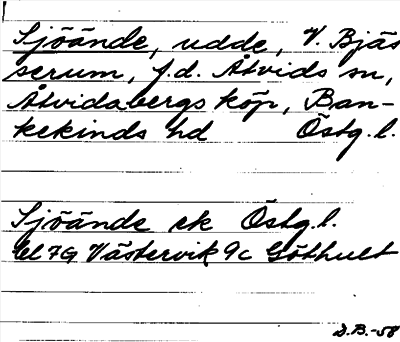 Sjöände, udde, V. Bjäs
serum, f.d. Åtvids sn,
Åtvidabergs köp, Ban-
kekinds hd Östg.l.
Sjöände ek Östg.l.
Bl 7G Västervik 9c Göthult
D.B.-58